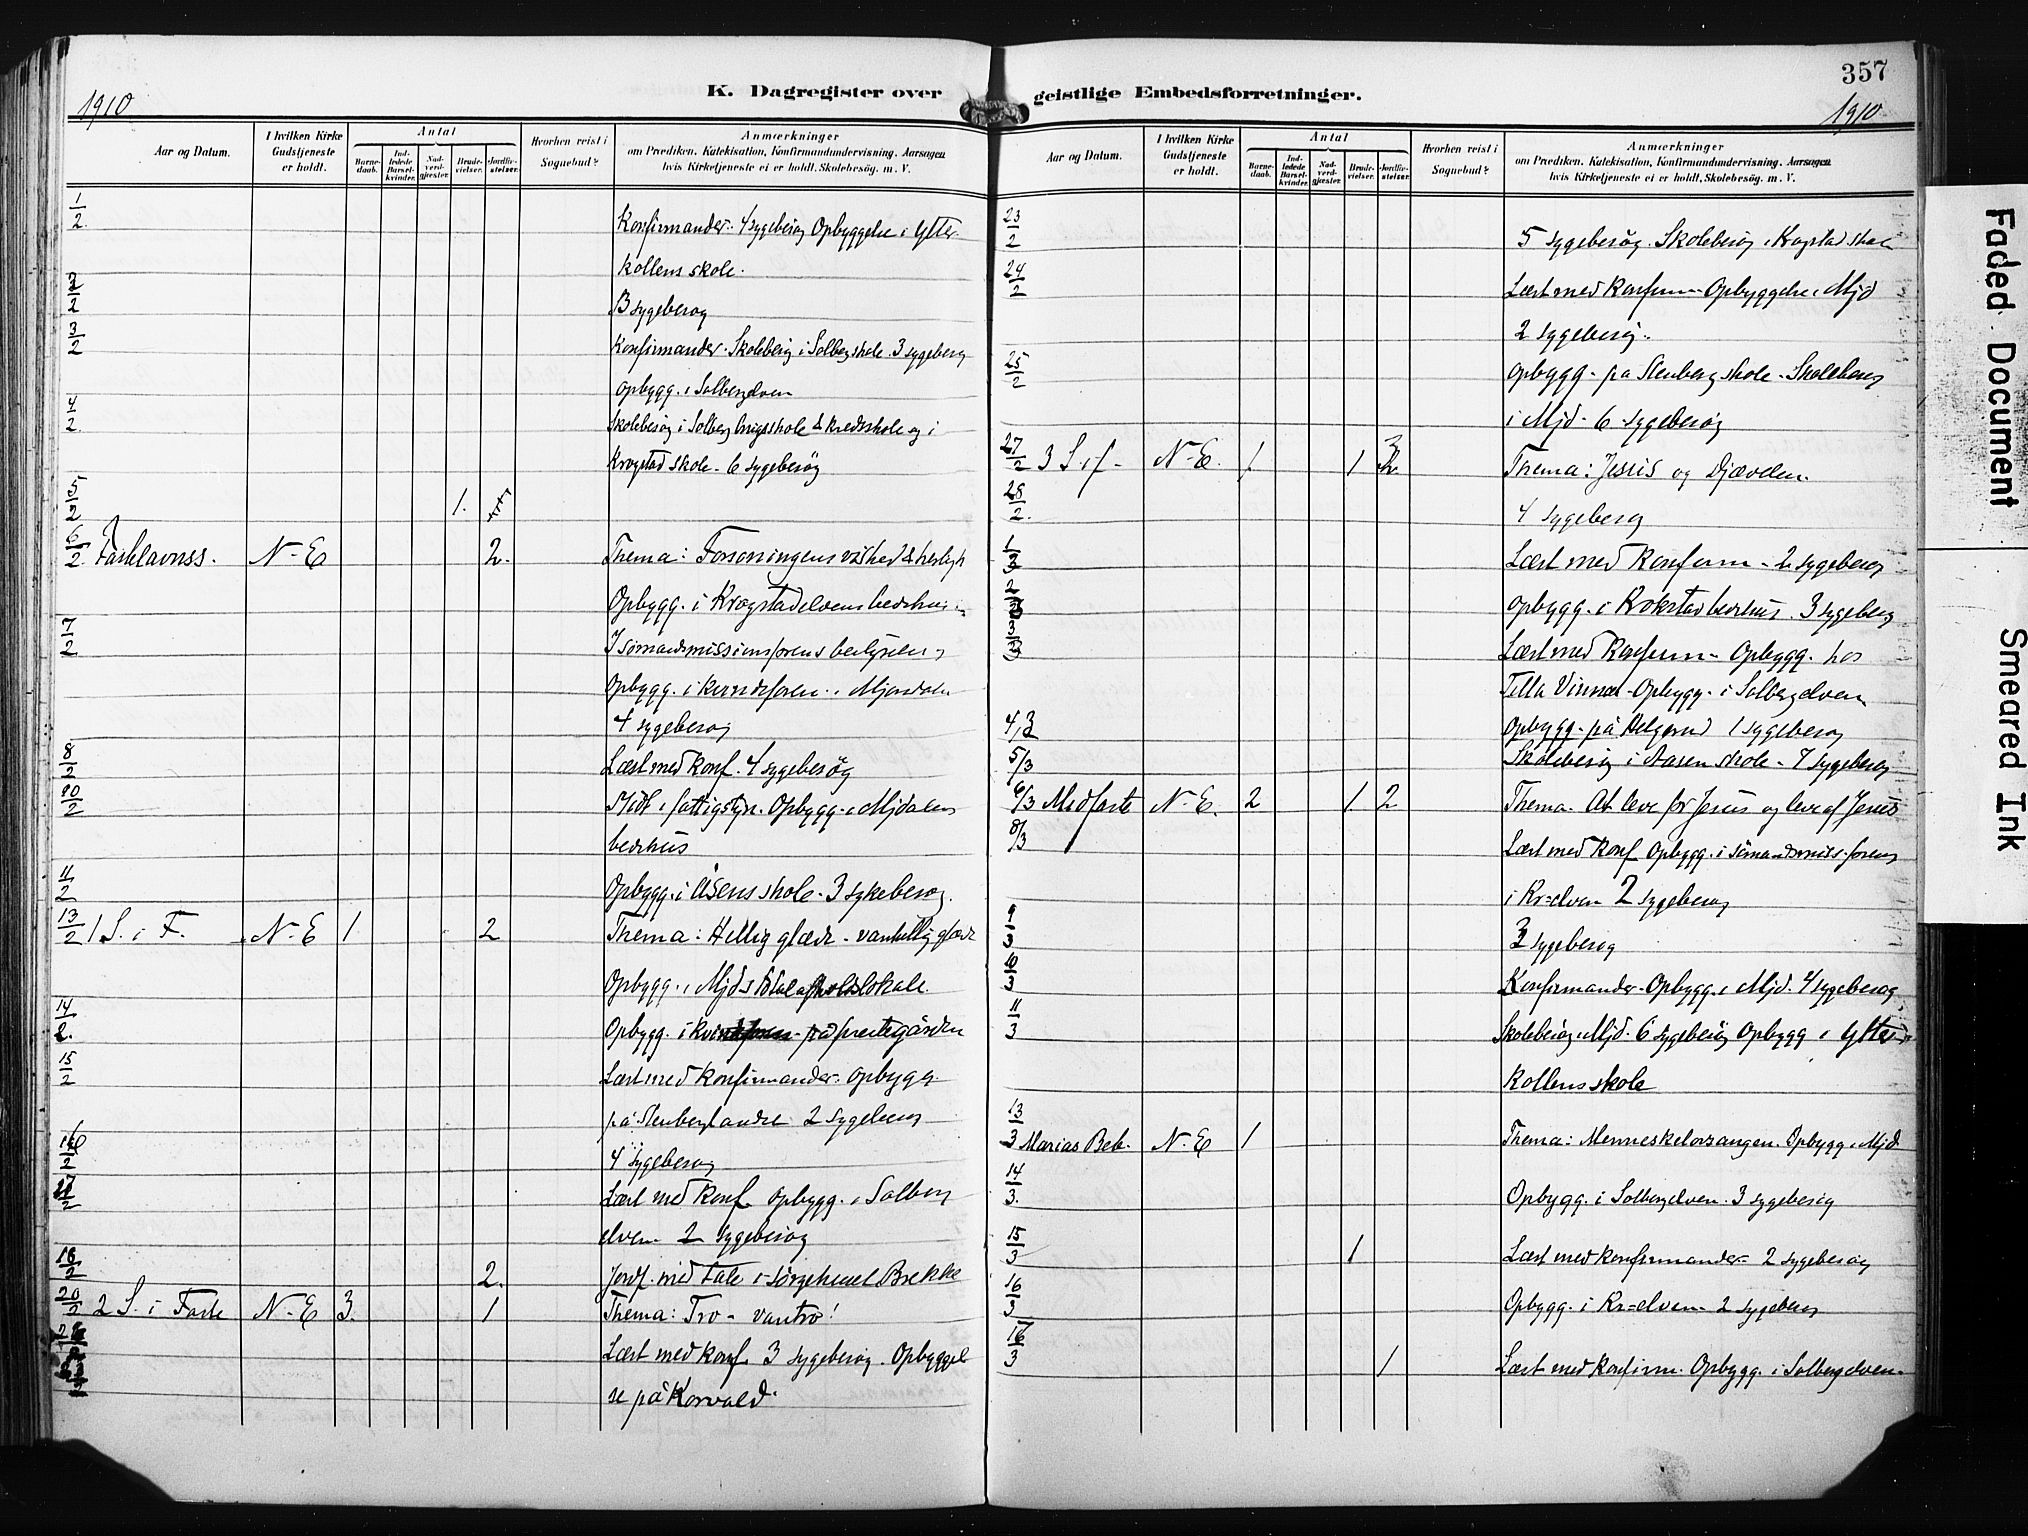 357
K. Dagregister over geistlige Embedsforretninger.
1910
1910
Aar og Datum.
I hvilken Kirke Gudstjeneste er holdt.
Antal
Barnedaab.
Indledede Barselkvinder.
Nadverdgjæster.
Brudevielser.
Jordfæstelser.
Hvorhen reist i Sognebud?
Anmærkninger
om Prædiken, Katekisation, Konfirmandundervisning, Aarsagen
hvis Kirketjeneste ei er holdt, Skolebesög, m. V.
1/2 Konfirmander. 4 sygebesøg Opbyggelse i Ytter
kollens skole.
2/2 3 sygebesøg
3/2 Konfirmander. Skolebesøg i Solberg skole. 3 sygebesøg
opbygg. i Solbergelven
4/2. Skolebesøg i Solberg brugsskole & kredsskole og i
Krogstad skole. 6 sygebesøg
5/2 1.
6/2. Fastelavnss. N-E 2. Thema: Forsoningens vished & herligh
Opbygg. i Krogstadelvens bedehus
7/2 I sømandsmissionsforens bestyrelse
opbygg. i kvindeforen. i Mjøndalen
4 sygebesøg
8/2 Læst med konf. 4 sygebesøg
10/2 Møde i fattigstyr. Opbygg. i Mjdalens
bedehus
11/2 Opbygg. i Åsens skole. 3 sykebesøg.
13/2 1 S. i F. N-E 1 2 Thema: Hellig glæde - vanhellig glæde
Opbygg. i Mjds totalafholdslokale.
14/2. Opbygg. i på prestegården
15/2 Læst med konfirmander. opbygg
på Stenberg 2 sygebesøg
16/2 4 sygebesøg
17/2 Læst med konf. opbygg. i Solberg
elven. 2 sygebesøg
18/2 2. Jordf. med tale i sørgehuset Brekke
20/2 2 S. i Faste N-E 3. 1 Thema: Tro - vantro!
Læst med konf. 3 sygebesøg. Opbyggel
se på Korvald.
Aar og Datum.
I hvilken Kirke Gudstjeneste er holdt.
Antal
Barnedaab.
Indledede Barselkvinder.
Nadverdgjæster.
Brudevielser.
Jordfæstelser.
Hvorhen reist i Sognebud?
Anmærkninger
om Prædiken, Katekisation, Konfirmandundervisning, Aarsagen
hvis Kirketjeneste ei er holdt, Skolebesög, m. V.
23/2 5 sygebesøg. Skolebesøg i Krogstad skole
24/2 Læst med konfirm- Opbyggelse i Mjd
2 sygebesøg.
25/2 opbygg. på Stenberg skole. Skolebesøg
i Mjd. 6 sygebesøg
27/2 3 S i f. N-E. 1 1 3 Thema: Jesus og Djævelen.
28/2. 4 sygebesøg
1/3 Læst med konfirm - 2 sygebesøg
2/3 opbygg. i Rokstad bedehus. 3 sygebesøg
3/3 Læst med konfirm- Opbygg. hos
Opbygg. i Solbergelven
4/3 opbygg. på Helgerud 1 sygebesøg
5/3 Skolebesøg i Aasen skole - 7 sygebesøg
6/3 Midfaste N-E. 2 1 2 Thema. At leve for Jesus og leve af Jesus
8/3 Læst med konf Opbygg. i sømandsmiss.foren
i Kr=elven 2 sygebesøg
9/3 3 sygebesøg
10/3 Konfirmander. Opbygg. i Mjd. 4 sygebesøg
11/3 Skolebesøg i Mjd. 6 sygebesøg Opbygg i Ytter
kollens skole
13/3 Marias Beb. N-E 1 Thema: Menneskelovsangen. Opbygg. i Mjd
14/3. Opbygg. i Solbergelven. 3 sygebesøg
15/3 1 Læst med konfirmander- 2 sygebesøg
16/3 Opbygg. i Kr=elven- 2 sygebesøg
16/3 1 Læst med konfirm. Opbygg. i Solbergelven.
Faded Document
Smeared Ink